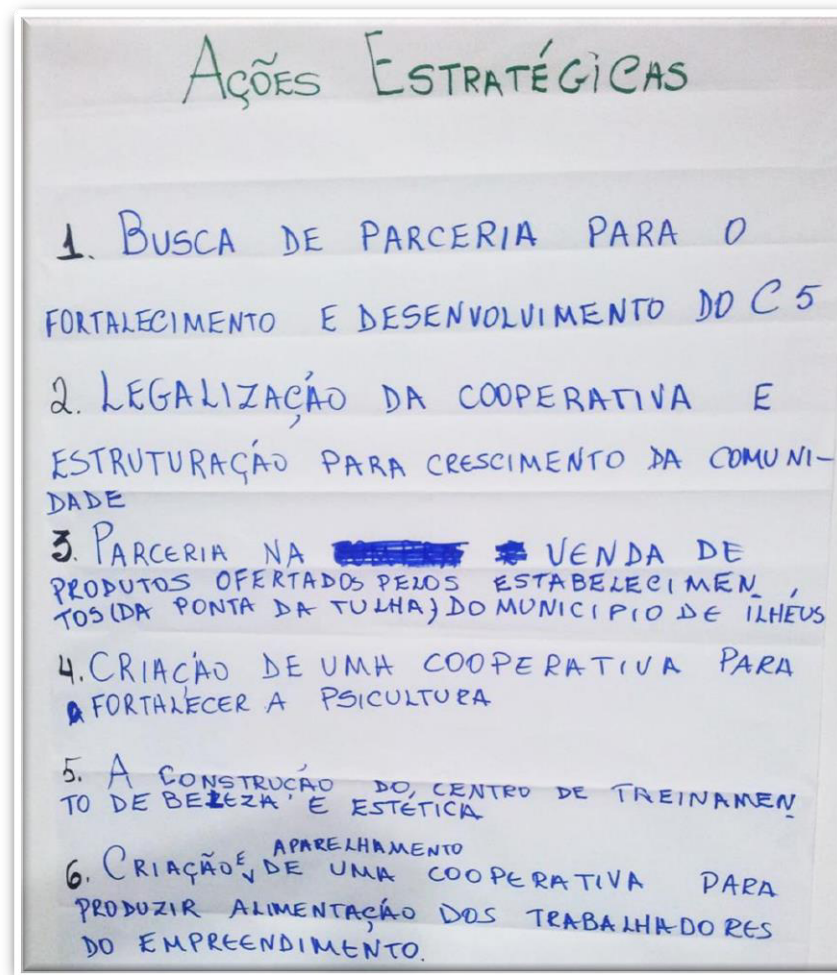 AÇÕES ESTRATÉGICAS
1. BUSCA DE PARCERIA PARA O
FORTALECIMENTO E DESENVOLVIMENTO DO C5
2. LEGALIZAÇÃO DA COOPERATIVA E
ESTRUTURAÇÃO PARA CRESCIMENTO DA COMUNI-
DADE
3. PARCERIA NA VENDA DE
PRODUTOS OFERTADOS PELOS ESTABELECIMEN
TOS (DA PONTA DA TULHA) DO MUNICIPIO DE ILHÉUS
4. CRIAÇÃO DE UMA COOPERATIVA PARA
FORTALECER A PSICULTURA
5. A CONSTRUÇÃO DO CENTRO DE TREINAMEN
TO DE BELEZA E ESTÉTICA
6. CRIAÇÃO E APARELHAMENTO DE UMA COOPERATIVA PARA
PRODUZIR ALIMENTAÇÃO DOS TRABALHADORES
DO EMPREENDIMENTO.